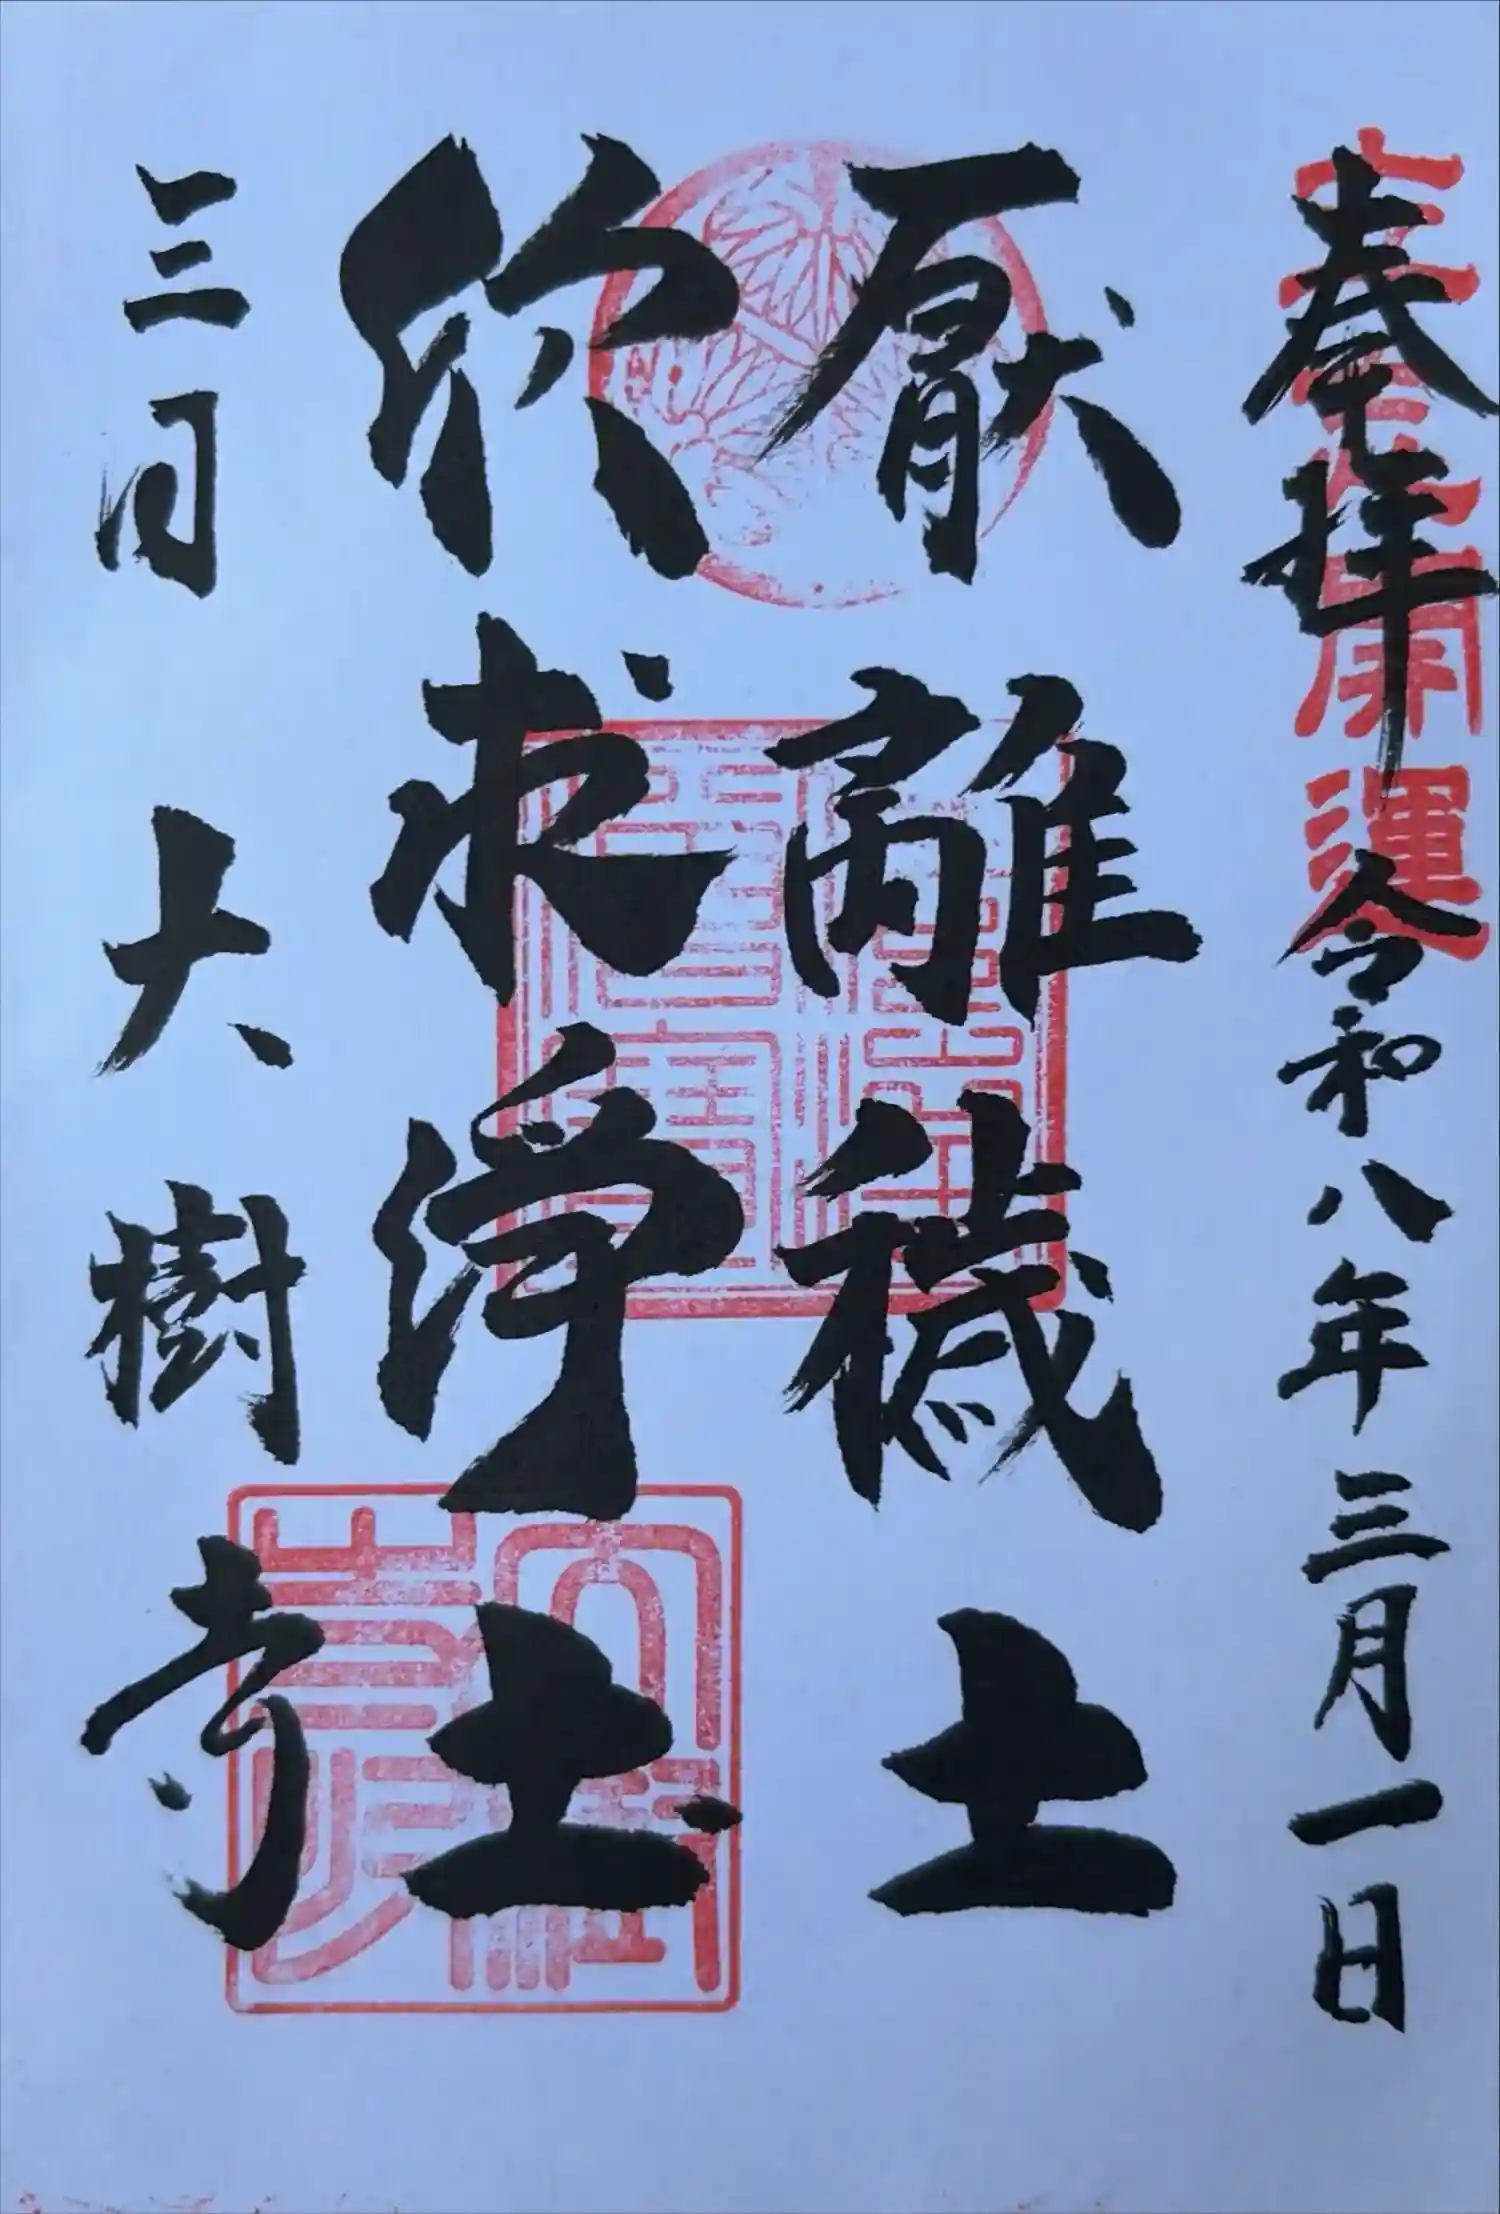 開運
奉拝 令和八年三月一日
厭離穢土
欣求浄土
大樹寺